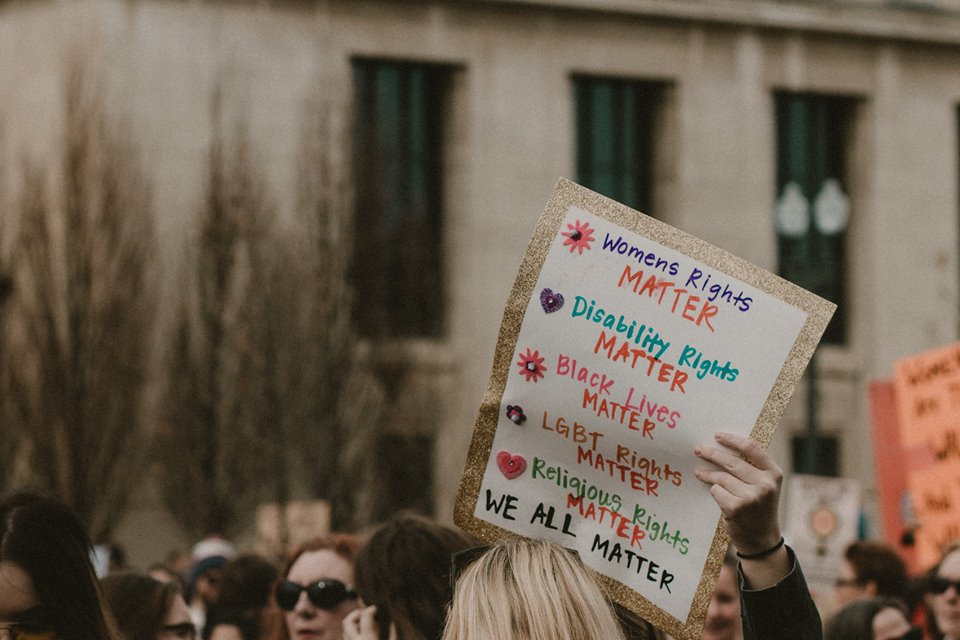 Womens Rights
MATTER
Disability Rights
MATTER
Black Lives
MATTER
LGBT Rights
MATTER
Religious Rights
MATTER
WE ALL MATTER